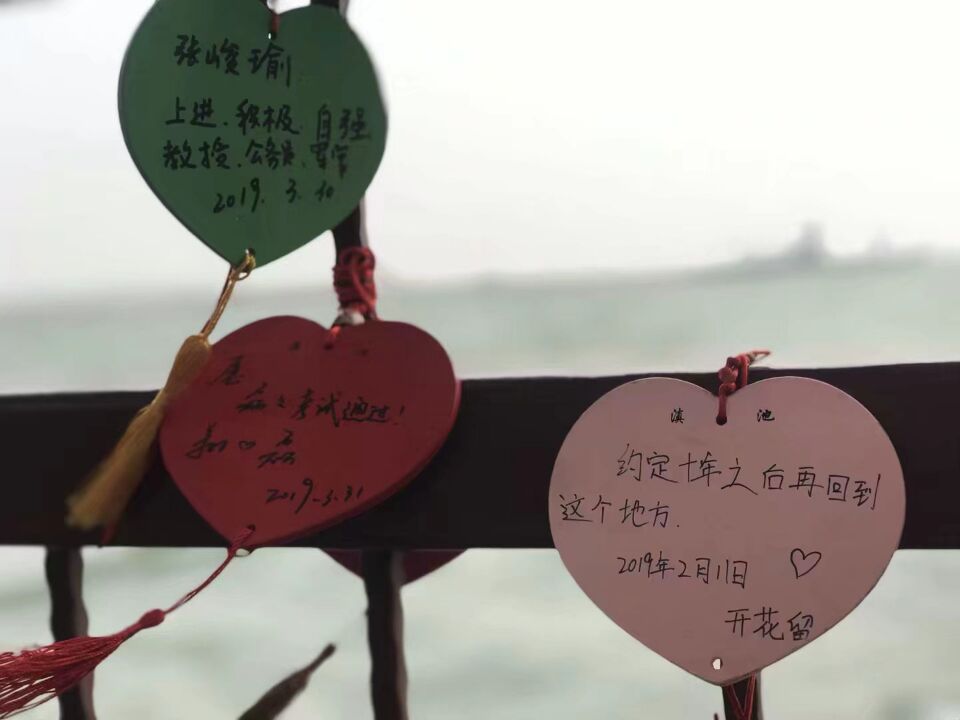 张峻瑜
上进.积极.自强
教授.公务员.
2019.3.10
愿
考试通过!
2019.3.31
滇 池
约定十年之后再回到
这个地方.
2019年2月11日 ♡
开花留